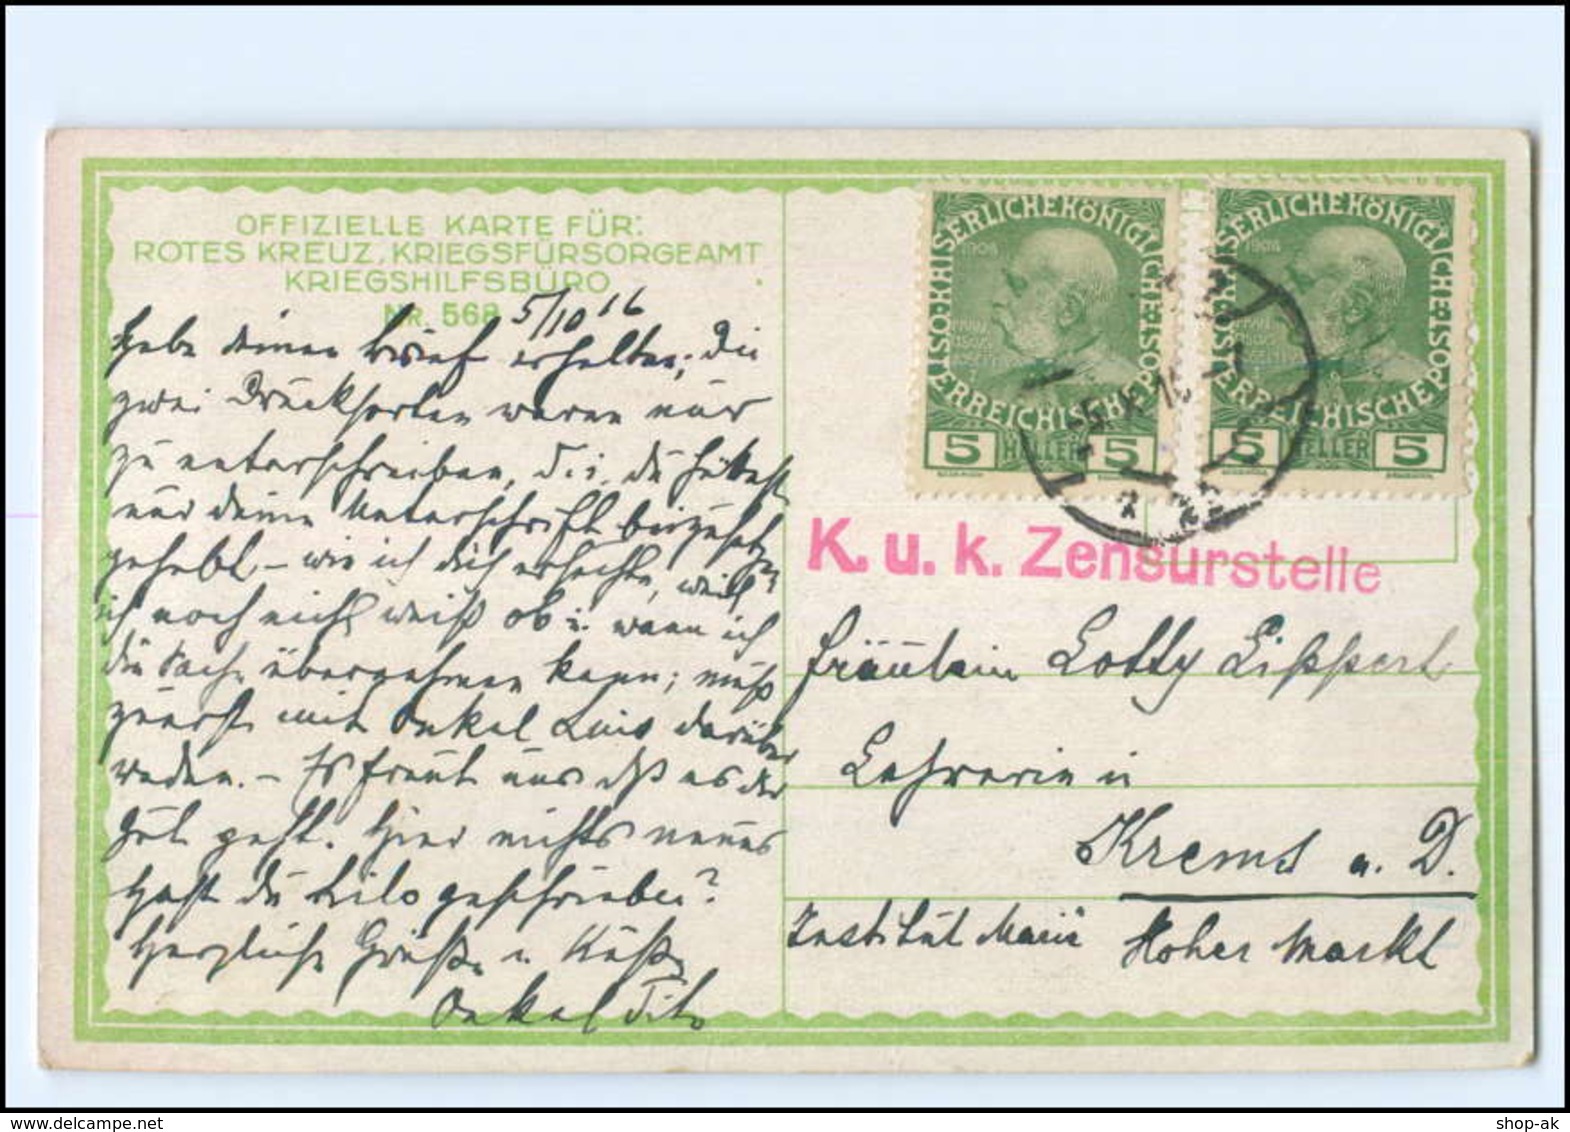 OFFIZIELLE KARTE FÜR:
ROTES KREUZ, KRIEGSFÜRSORGEAMT
KRIEGSHILFSBÜRO
NR. 568
5/10 16
Habe deinen Brief erhalten; die
zwei Drucksorten waren nur
zu unterschreiben, d. i. du hättest
nur deine Unterschrift beizusetzen
gehabt – wie ich dich ersuchte, weil
ich noch nicht weiß ob u. wann ich
die Sache übernehmen kann; muß
zuerst mit Onkel Luis darüber
reden. – Es freut uns daß es dir
gut geht. Hier nichts neues
Hast du geschrieben?
Herzliche Grüße u. Küße
Onkel Tito
KAISERLICHE KÖNIGLICHE ÖSTERREICHISCHE POST
1908
5 HELLER 5
KAISERLICHE KÖNIGLICHE ÖSTERREICHISCHE POST
1908
5 HELLER 5
K. u. k. Zensurstelle
Fräulein Lotty Lippert
Lehrerin in
Krems a. D.
Institut Hoher Markt
shop-ak